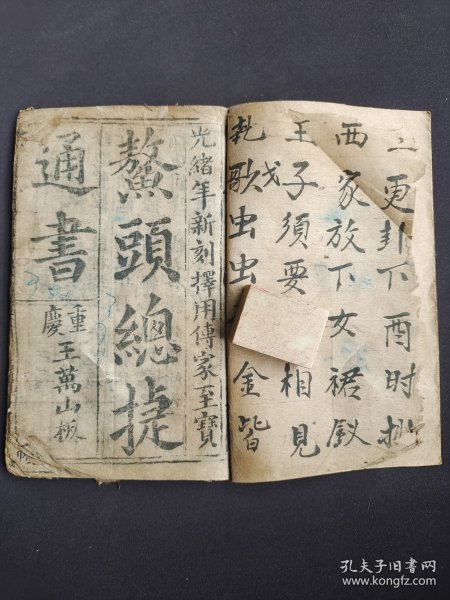 二更卦下酉时
西家放下女裙釵
王子須要 相見
歌虫虫 金皆
光緒年新刻擇用傳家至寶
鰲頭總捷
通書
重慶王萬山板
孔夫子旧书网
www.kongfz.com